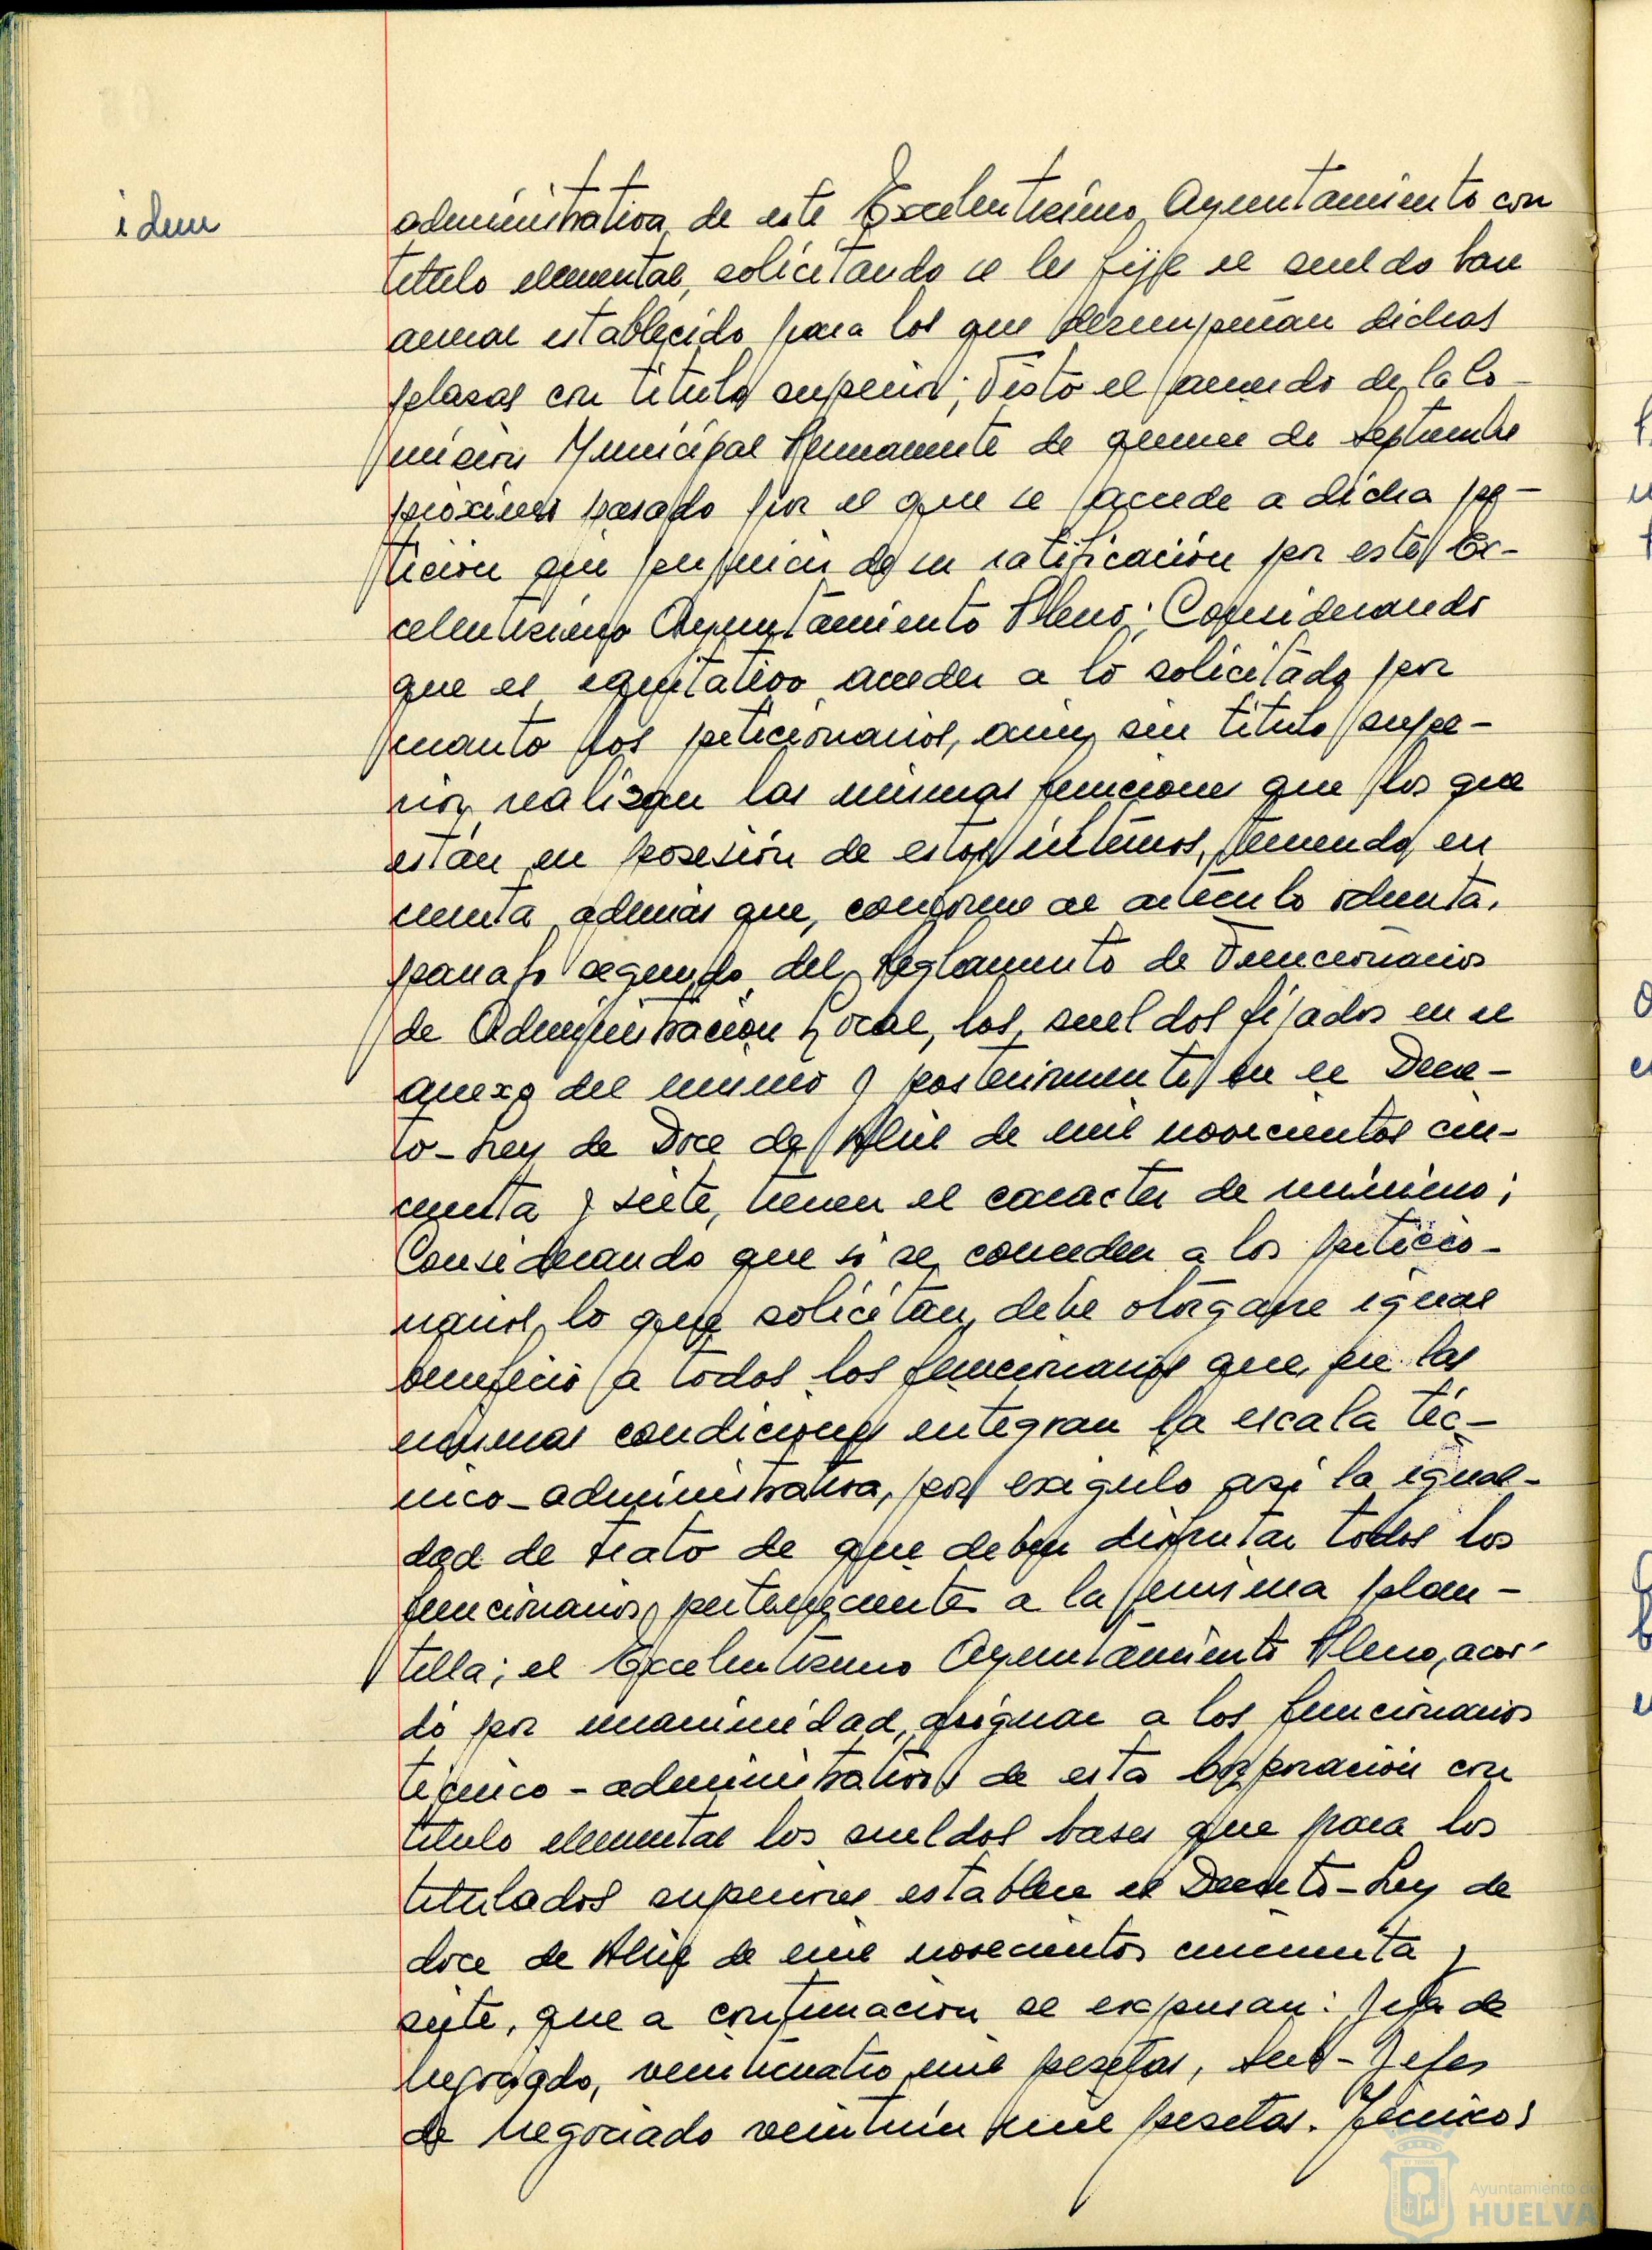 idem
administrativa de este Excelentísimo Ayuntamiento con
título elemental, solicitando se les fije el sueldo base
anual establecido para los que desempeñan dichas
plazas con título superior; Visto el acuerdo de la Co-
misión Municipal Permanente de quince de Septiembre
próximo pasado por el que se accede a dicha pe-
tición sin perjuicio de su ratificación por este Ex-
celentísimo Ayuntamiento Pleno; Considerando
que es equitativo acceder a lo solicitado por
cuanto los peticionarios, aún sin título supe-
rior, realizan las mismas funciones que los que
están en posesión de estos últimos, teniendo en
cuenta además que, conforme al artículo ochenta,
párrafo segundo del Reglamento de Funcionarios
de Administración Local, los sueldos fijados en el
anexo del mismo y posteriormente en el Decre-
to-Ley de Doce de Abril de mil novecientos cin-
cuenta y siete, tienen el caracter de mínimo;
Considerando que si se conceden a los peticio-
narios lo que solicitan, debe otorgarse igual
beneficio a todos los funcionarios que en las
mismas condiciones integran la escala téc-
nico-administrativa, por exigirlo así la igual-
dad de trato de que deben disfrutar todos los
funcionarios pertenecientes a la misma plan-
tilla; el Excelentísimo Ayuntamiento Pleno, acor-
dó por unanimidad, asignar a los funcionarios
técnico-administrativos de esta Corporación con
título elemental los sueldos bases que para los
titulados superiores establece el Decreto-Ley de
doce de Abril de mil novecientos cincuenta y
siete, que a continuación se expresan: Jefes de
Negociado, veinticuatro mil pesetas, Sub-Jefes
de Negociado veintiún mil pesetas. Técnicos
Ayuntamiento de
HUELVA